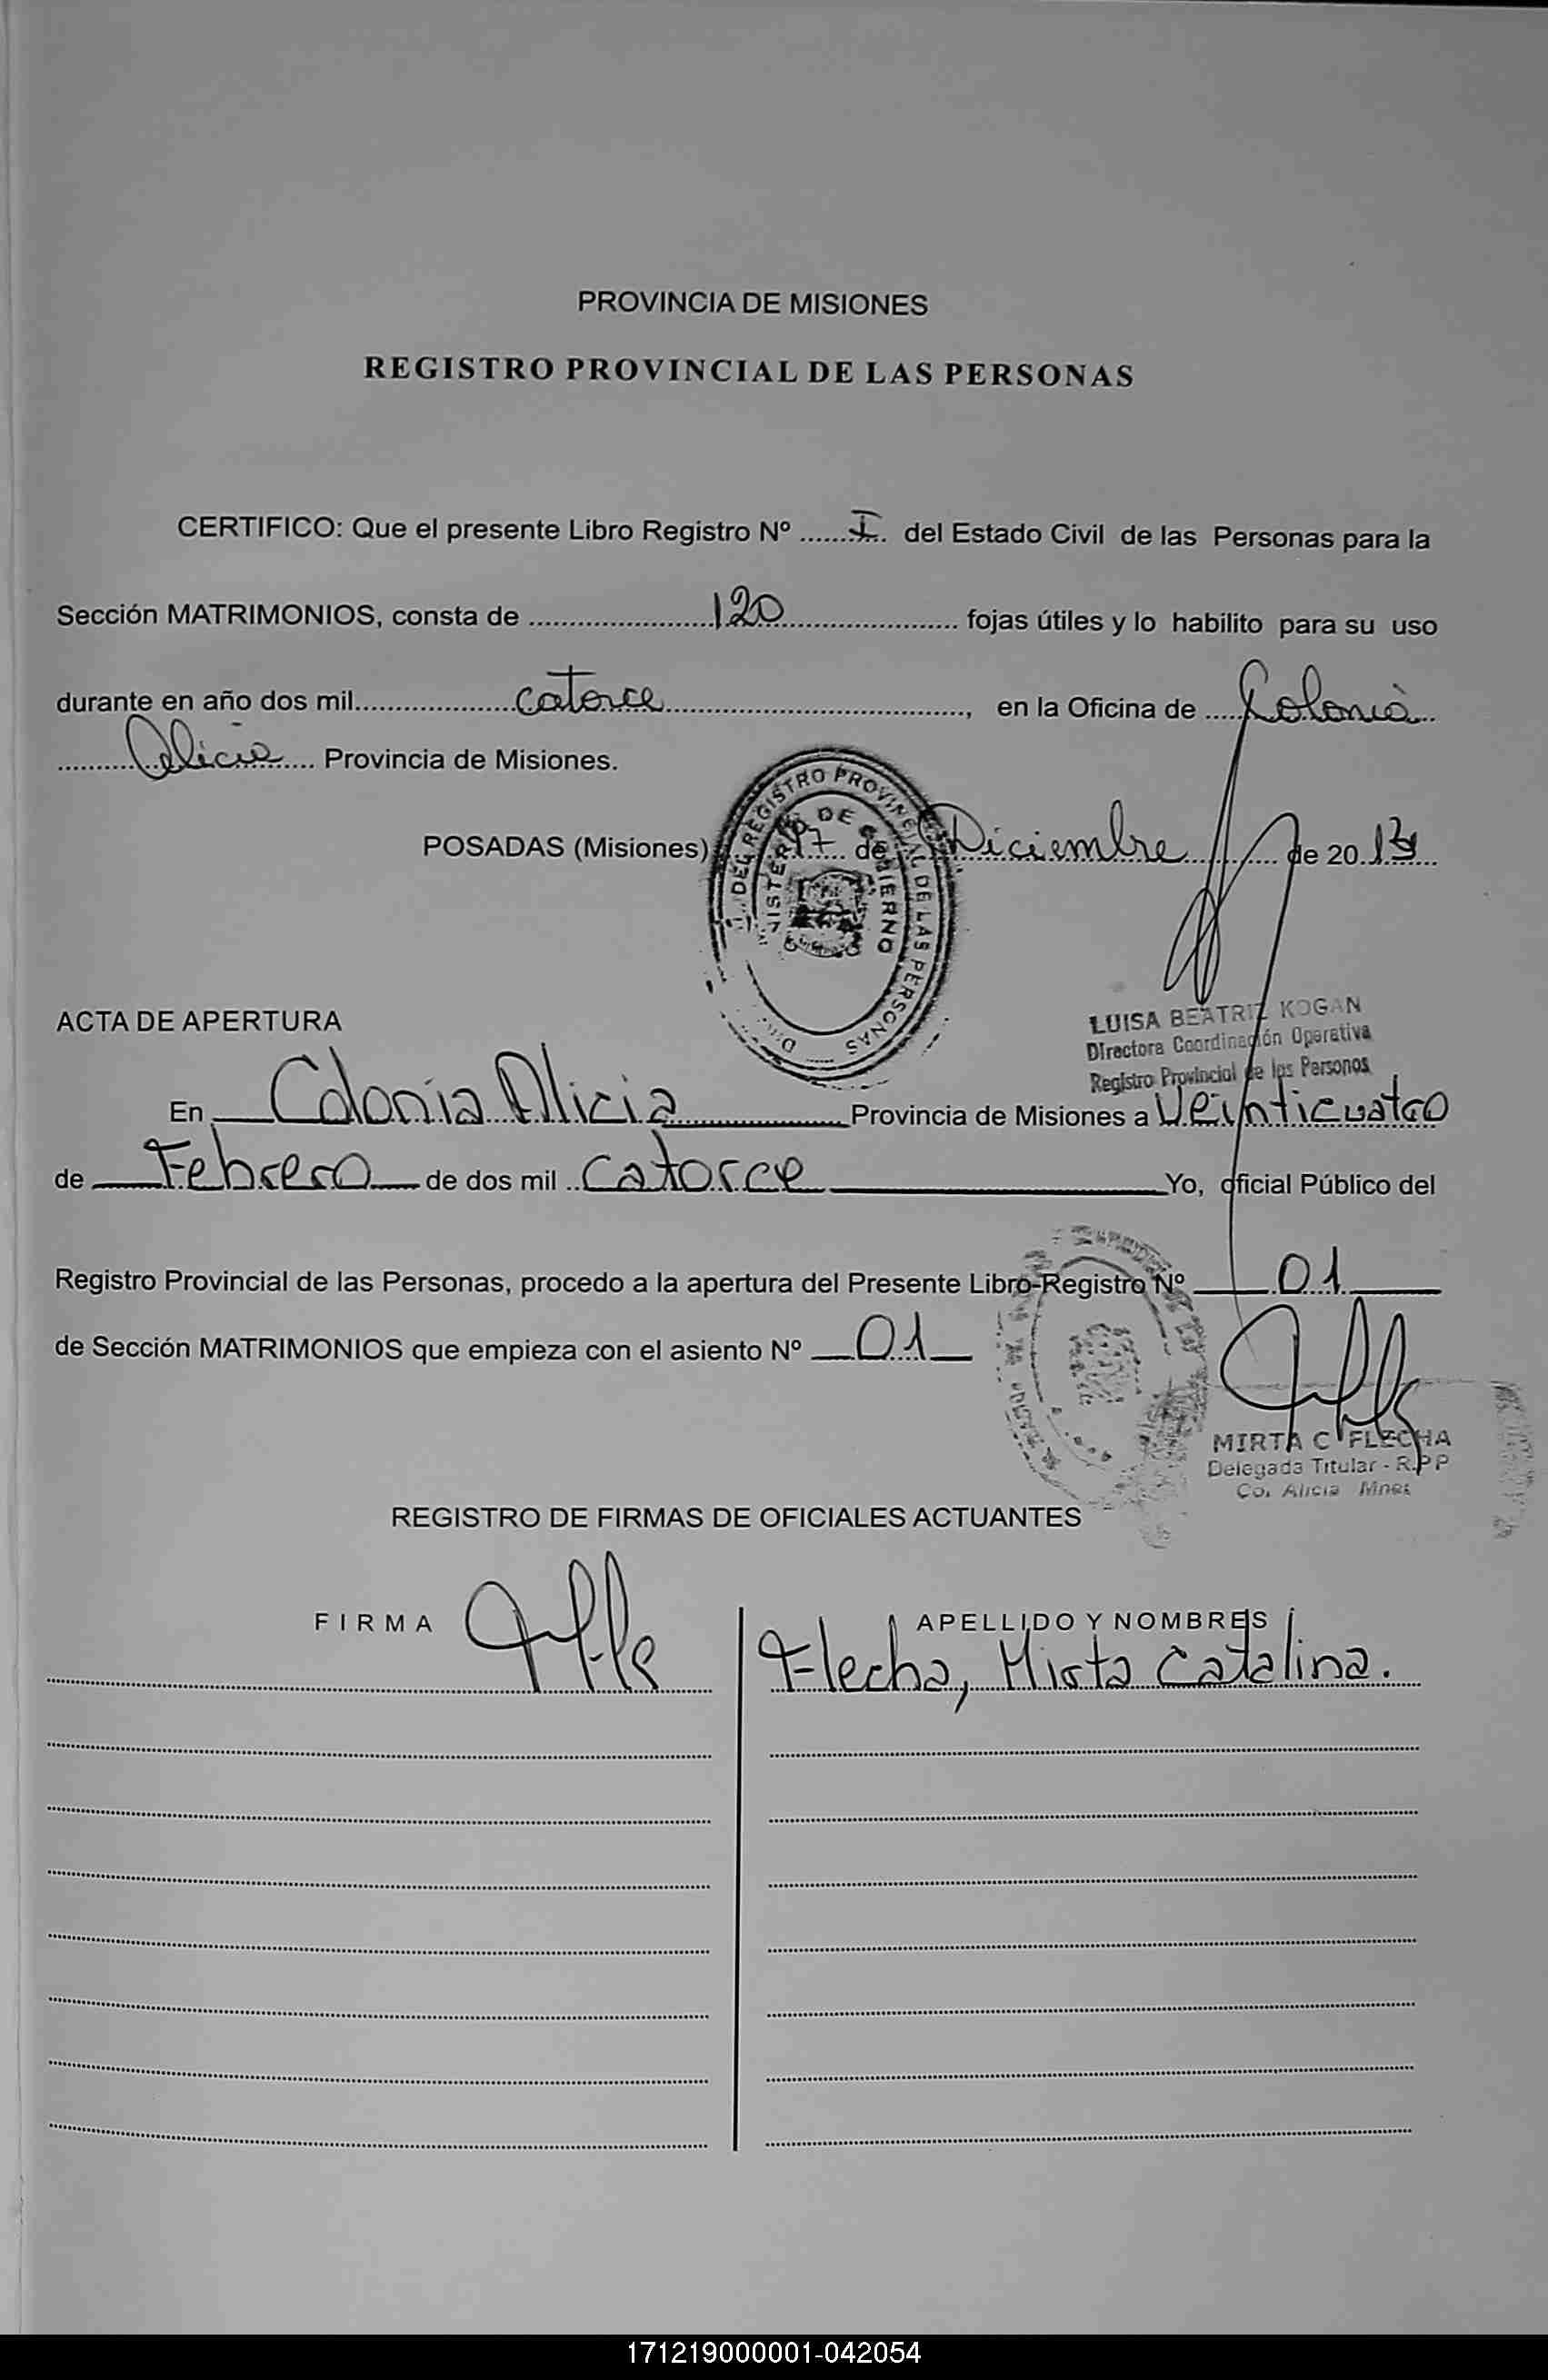 PROVINCIA DE MISIONES
REGISTRO PROVINCIAL DE LAS PERSONAS
CERTIFICO: Que el presente Libro Registro Nº ......I.. del Estado Civil de las Personas para la
Sección MATRIMONIOS, consta de ..........120.......... fojas útiles y lo habilito para su uso
durante en año dos mil..........catorce.........., en la Oficina de .....Colonia..
..........Alicia.... Provincia de Misiones.
POSADAS (Misiones) 17 de Diciembre de 2013
DEL REGISTRO PROVINCIAL DE LAS PERSONAS
MINISTERIO DE GOBIERNO
LUISA BEATRIZ KOGAN
Directora Coordinación Operativa
Registro Provincial de las Personas
ACTA DE APERTURA
En Colonia Alicia Provincia de Misiones a Veinticuatro
de Febrero de dos mil ..catorce Yo, oficial Público del
Registro Provincial de las Personas, procedo a la apertura del Presente Libro-Registro Nº 01
de Sección MATRIMONIOS que empieza con el asiento Nº 01
MIRTA C FLECHA
Delegada Titular - R.P P
Co. Alicia Mnes
REGISTRO DE FIRMAS DE OFICIALES ACTUANTES
FIRMA APELLIDO Y NOMBRES
Flecha, Mirta Catalina.
171219000001-042054